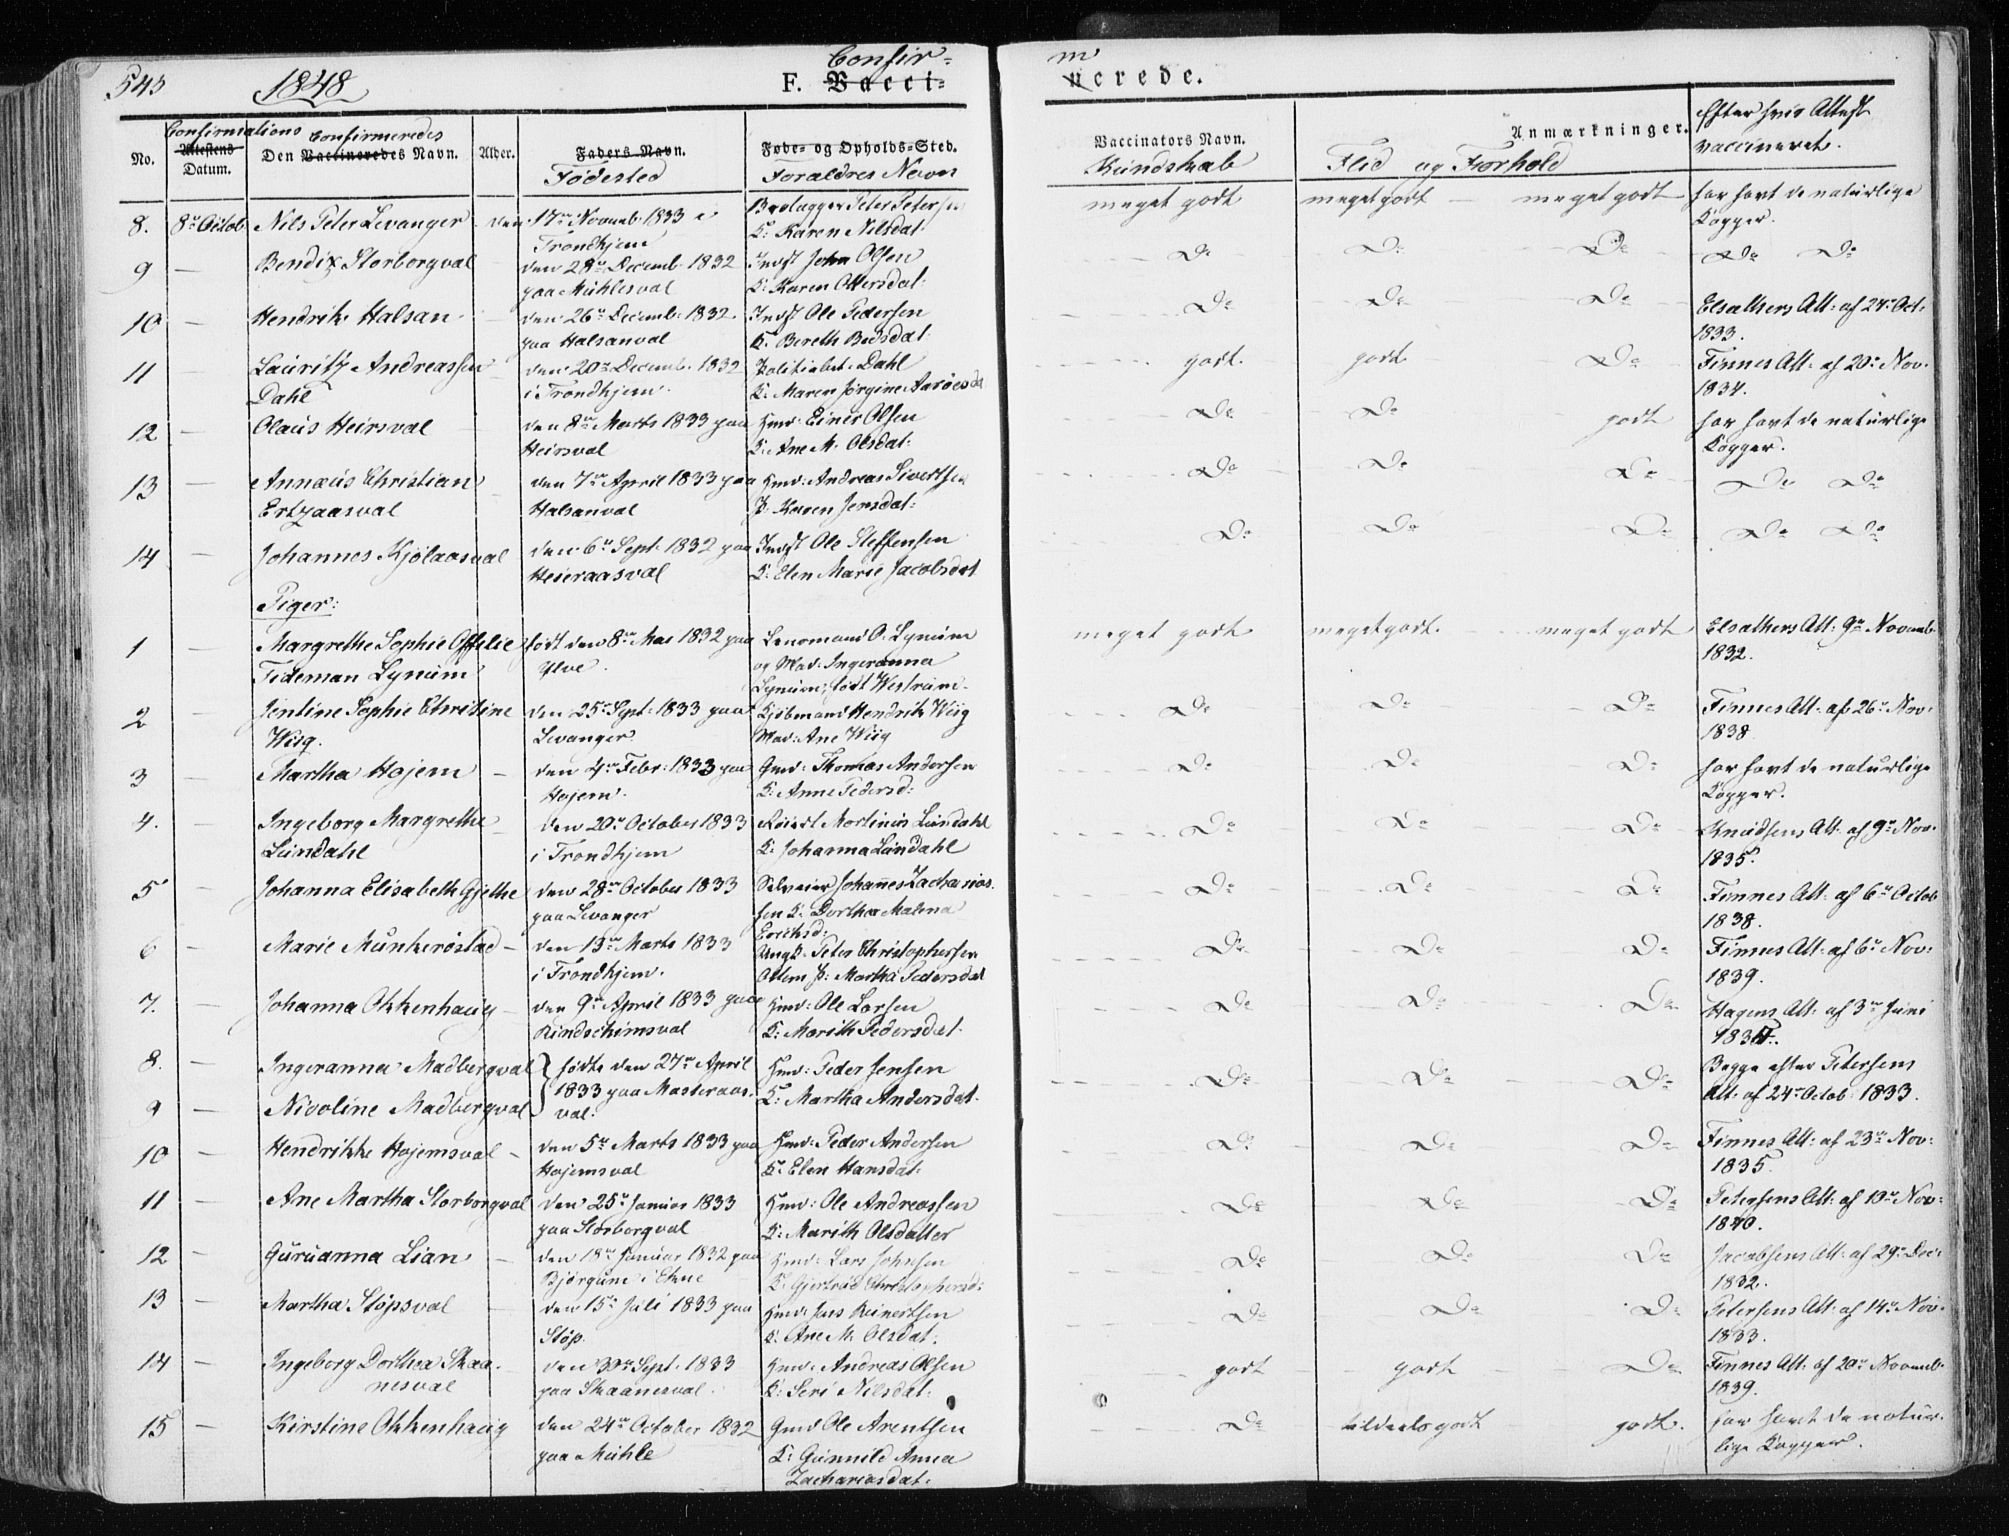 543 1848 F. Vacci=
Confir=
m
nerede.
Confirmations Confirmeredes
No. Attestens Datum. Den Vaccineredes Navn. Alder. Faders Navn. Føde- og Opholds-Sted.
Fødested Forældres Navn
Vaccinators Navn. Anmærkninger. Efter hvis Attest
Kundskab Flid og Forhold vaccineret.
8. 8de Octob Nils Peter Levanger den 17de Novemb. 1833 i Peter Petersen meget godt meget godt meget godt har havt de naturlige
Trondhjem K: Karen Nilsdat: Kopper.
9 — Bendix Storborgval den 28de Decemb. 1832 Indst John Olsen Do Do Do Do Do
paa Mühlesval K: Karen Ottersdat:
10 — Hendrik Halsan den 26de Decemb. 1832 Indst Ole Pedersen Do Do Do Elsathers Att: af 24de Oct:
paa Halsanval K: Bereth 1833.
11 — Lauritz Andreassen den 20de Decemb. 1832 Politibet. Dahl godt godt Do Finnes Att: af 20de Nov.
Dahl i Trondhjem. K: Maren Jørgine 1834.
12 — Olaus Heirsval den 8de Marts 1833 paa Hmd: Einer Olsen Do Do godt har havt de naturlige
Heirsval K: Ane M. Olsdat: Kopper.
13 — Annæus Christian den 7de April 1833 paa Hmd: Andreas Sivertsen Do Do Do Do Do
Ertzaasval Halsanval K. Karen Jensdat:
14 — Johannes Kjølaasval den 6te Sept. 1832 paa Indst Ole Steffensen Do Do Do Do Do
Heieraasval K: Elen Marie Jacobsdat
Piger:
1 — Margrethe Sophie Offelie født den 8de Mai 1832 paa Lensmand O. Lynum meget godt meget godt meget godt Elsathers Att: 9de Novemb
Tideman Lynum Ylve. og Mad: Ingeranna 1832.
Lynum, født Westrum.
2 — Jentine Sophie Christine den 25de Sept. 1833 paa Kjøbmand Hendrik Wiig Do Do Do Finnes Att: af 26de Nov.
Wiig. Levanger. Mad: Ane Wiig 1838
3 — Martha Hojem den 4de Febr. 1833 paa Gmd: Thomas Andersen Do Do Do har havt de naturlige
Hojem. K: Anne Pedersd: Kopper.
4. — Ingeborg Margrethe den 20de October 1833 Martinus Lundahl Do Do Do Knudsens Att: af 9de Nov.
Lundahl i Trondhjem K: Johanna Lundahl 1835.
5 — Johanna Elisabeth Gjethe den 28de October 1833 Selveier Johannes Zacharias- Do Do Do Finnes Att: af 6te Octob
paa Levanger sen K: Dorthea Malena 1838.
Ericksd:
6 — Marie Munkerøstad den 13de Marts 1833 Ungk. Peter Christophersen Do Do Do Finnes Att: af 6te Nov:
i Trondhjem. P: Martha Pedersdat 1839.
7. — Johanna Okkenhaug den 9de April 1833 paa Hmd: Ole Larsen Do Do Do Hagens Att: af 3de Juni
K: Marith Pedersdat. 1834.
8. — Ingeranna Madbergval fødte den 27de April Hmd: Peder Jensen Do Do Do Begge efter Petersens
1833 paa Masteraas- K: Martha Andersdat. Att: af 24de Octob. 1833.
9 — Nicoline Madbergval val.
10 — Hendrikke Hojemsval den 5te Marts 1833 paa Hmd: Peder Andersen Do Do Do Finnes Att: af 23de Nov:
Hojemsval K. Elen Hansdat: 1835.
11 — Ane Martha Storborgval den 25de Januar 1833 Hmd: Ole Andreassen Do Do Do Petersens Att: af 10de Nov:
paa Storborgval K: Marith Olsdatter 1840.
12 — Guruanna Lian den 18de Januar 1832 paa Hmd: Lars Johnsen Do Do Do Jacobsens Att: af 29de Dec:
Bjørgum i Ekne K: Gjertrud Christophersd: 1832.
13 — Martha Støpsval den 15de Juli 1833 paa Hmd: Jens Reinertsen Do Do Do Petersens Att: af 14de Nov.
Støp. K: Ane M. Olsdat: 1833.
14 — Ingeborg Dorthea Skaa- den 30te Sept. 1833 Hmd: Andreas Olsen godt godt Do Finnes Att: af 20de Novemb
nesval paa Skaanesval. K: Seri Nilsdat: 1839.
15 — Kirstine Okkenhaug den 24de October 1832 Gmd Ole Arentsen Do tildeels godt godt. har havt de natur-
paa Mühle K: Gunnild Anna lige Kopper.
Zachariasdat: